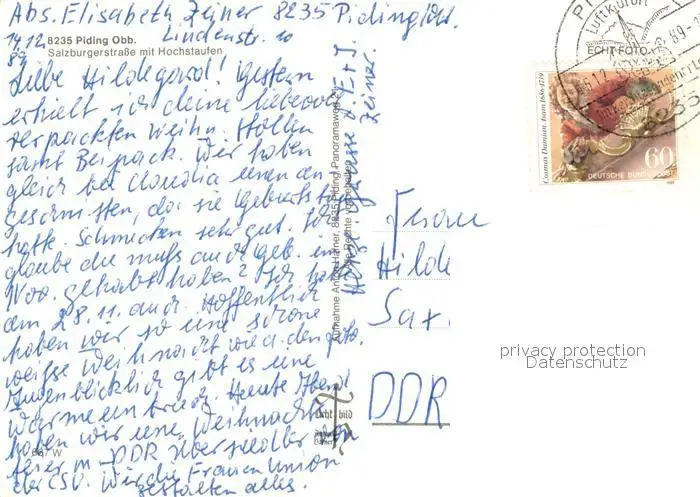 Abs. Elisabeth Zeiner 8235 Piding/Obb.
Lindenstr. 10
14.12.
89
8235 Piding Obb.
Salzburgerstraße mit Hochstaufen
Liebe Hildegard! Gestern
erhielt ich deine liebevoll
verpackten Weihn. Stollen
samt Beipack. Wir haben
gleich bei Claudia einen an-
geschnitten, da sie Geburtstag
hatte. Schmecken sehr gut. Ich
glaube du mußt auch geb. im
Nov. gehabt haben? Ich hatte
am 28.11. auch. Hoffentlich
haben wir so eine schöne
weisse Weihnacht wie a. den Foto.
Augenblicklich gibt es eine
Wärmeeinbruch. Heute Abend
haben wir eine Weihnachts-
feier m. DDR Übersiedler von
der CSU. Wir die Frauenunion
gestalten alles.
Grüsse d. E + J.
Zeiner.
8235 Piding, Panoramaweg
Echt Bild
667 W
Frau
Hilde
Sax
DDR
ECHT FOTO
PI
Luftkurort
8235
Cosmas Damian Asam 1686-1739
60
DEUTSCHE BUNDESPOST
privacy protection
Datenschutz